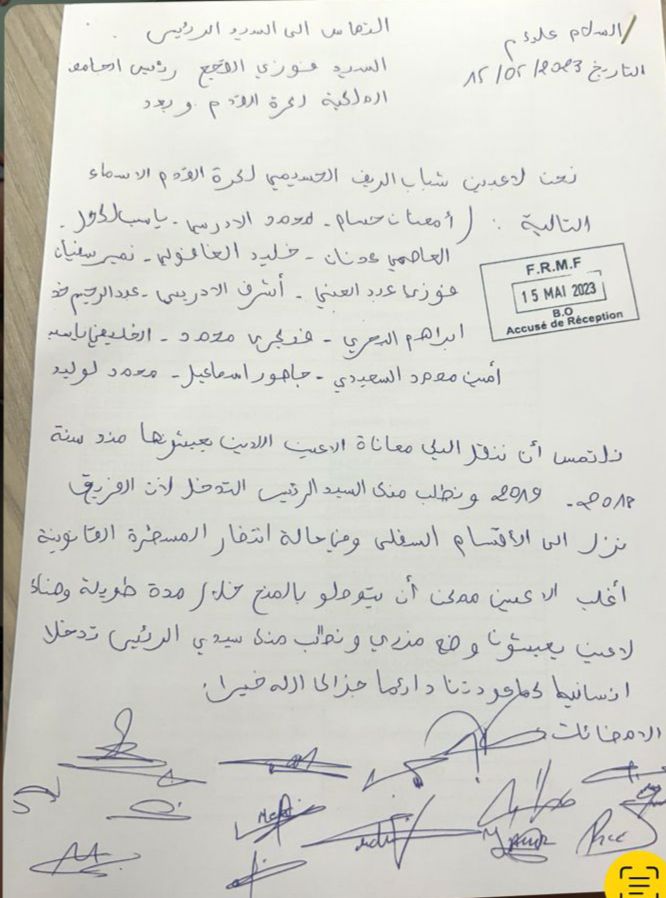 السلام عليكم
التاريخ 15/05/2023
التماس الى السيد الرئيس
السيد فوزي القجع رئيس الجامعة
الملكية لكرة القدم وبعد
نحن لاعبين شباب الريف الحسيمي لكرة القدم الاسماء
التالية : أمعنان حسام - محمد الادريسي - ياسين
العاصمي عدنان - خليد العاقولي - نمير سفيان
فوزي عبد الغني - أشرف الادريسي - عبد الرحيم
ابراهيم البحري - فجري محمد - الخليفي ياسين
أمين محمد السعيدي - جاهور اسماعيل - محمد لوليد
F.R.M.F
15 MAI 2023
B.O
Accusé de Réception
نلتمس أن ننقل اليك معاناة الاعبين اللدين يعيشونها مند سنة
2018 - 2019 ونطلب منك السيد الرئيس التدخل لأن الفريق
نزل الى الأقسام السفلى وفي حالة انتضار المسطرة القانونية
أغلب الاعبين ممكن أن يتوصلو بالمنح خلال مدة طويلة وهناك
لاعبين يعيشون وضع مزري ونطلب منك سيدي الرئيس تدخلا
انسانيا كما عودتنا دائما جزاك الله خيرا.
الامضائات